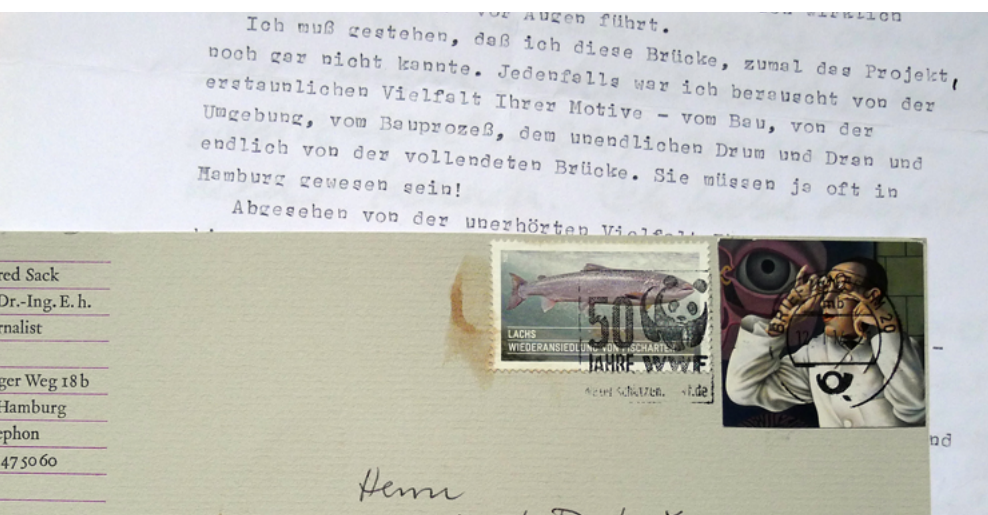 vor Augen führt.
Ich muß gestehen, daß ich diese Brücke, zumal das Projekt,
noch gar nicht kannte. Jedenfalls war ich berauscht von der
erstaunlichen Vielfalt Ihrer Motive - vom Bau, von der
Umgebung, vom Bauprozeß, dem unendlichen Drum und Dran und
endlich von der vollendeten Brücke. Sie müssen ja oft in
Hamburg gewesen sein!
Abgesehen von der unerhörten Vielfalt
red Sack
Dr.-Ing. E. h.
rnalist
ger Weg 18 b
Hamburg
ephon
47 50 60
LACHS
WIEDERANSIEDLUNG VON FISCHARTEN
50
JAHRE WWF
BRIEFZENTRUM 20
nd
Herrn